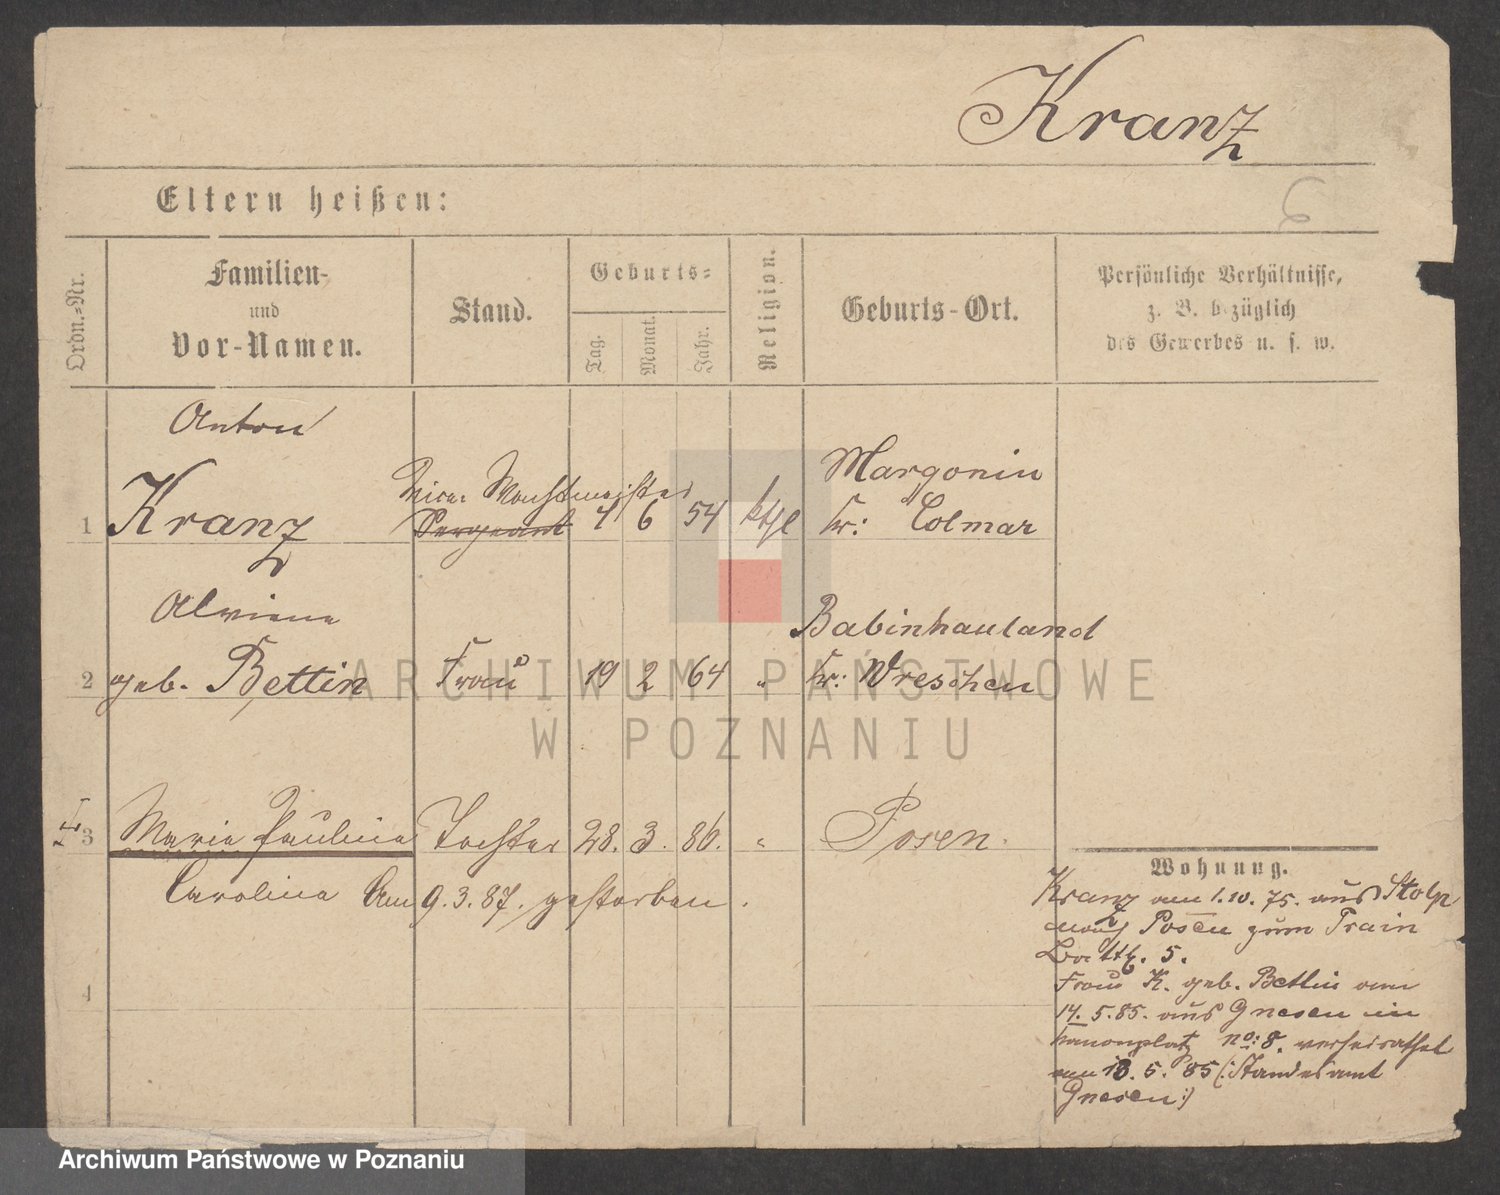 Kranz
Eltern heißen:
6
Ordn.-Nr.
Familien-
und
Vor-Namen.
Stand.
Geburts-
Tag.
Monat.
Jahr.
Religion.
Geburts-Ort.
Persönliche Verhältnisse,
z. B. bezüglich
des Gewerbes u. s. w.
Anton
1 Kranz
Vice Wachtmeister
Sergeant 6 54 ktgl
Margonin
Kr: Colmar
Alwiene
2 geb. Bettin Frau 19 2 64 "
Babinhauland
Kr: Wreschen
3 Marie Pauline Tochter 28. 3. 86. " Posen.
Carolina Am 9.3.87. gestorben.
4
Wohnung.
Kranz am 1.10.75. aus Stolp
nach Posen zum Train
Battl. 5.
Frau K. geb. Bettin am
14.5.85. aus Gnesen in
Kanonplatz no: 8. verheirathet
am 5. 85 (: Standesamt
Gnesen :)
ARCHIWUM PAŃSTWOWE
W POZNANIU
Archiwum Państwowe w Poznaniu